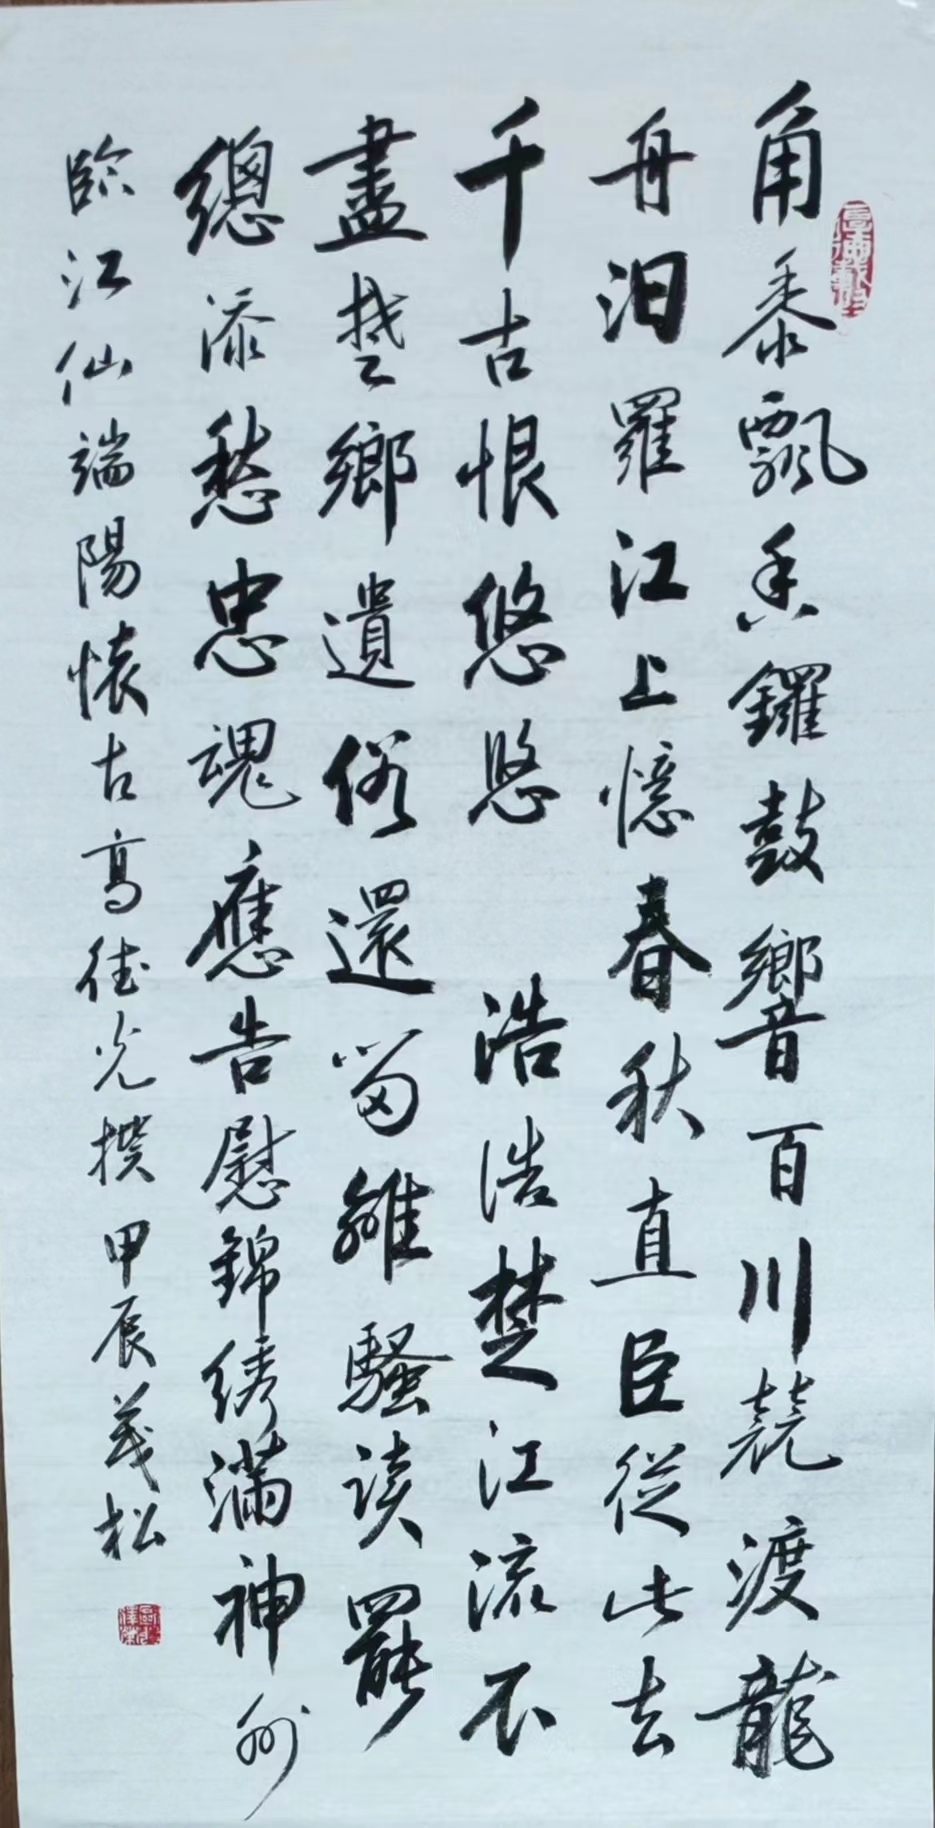 角黍飄香鑼鼓響百川競渡龍
舟汨羅江上憶春秋直臣從此去
千古恨悠悠 浩浩楚江流不
盡楚鄉遺俗還留離騷讀罷
總添愁忠魂應告慰錦绣滿神州
臨江仙端陽懷古高德光撰 甲辰義松
厚德載物